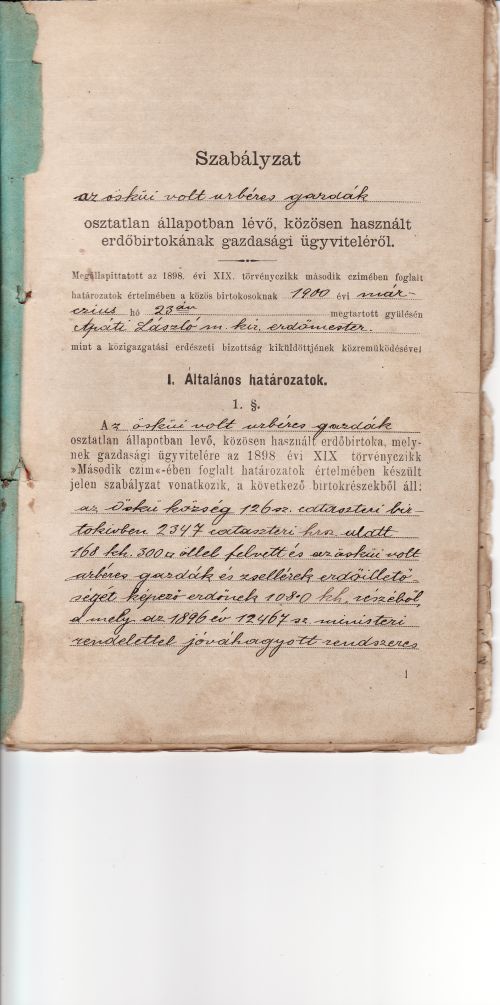 Szabályzat
az öskü​i volt urbéres gazdák
osztatlan állapotban lévő, közösen használt
erdőbirtokának gazdasági ügyviteléről.
Megállapittatott az 1898. évi XIX. törvényczikk második czimében foglalt
határozatok értelmében a közös birtokosoknak 1900 évi már-
czius hó 23án megtartott gyülésén
Apáti László m. kir. erdőmester.
mint a közigazgatási erdészeti bizottság kiküldöttjének közremüködésével
I. Általános határozatok.
1. §.
Az ösküi volt urbéres gazdák
osztatlan állapotban levő, közösen használt erdőbirtoka, mely-
nek gazdasági ügyvitelére az 1898 évi XIX törvényczikk
»Második czim«-ében foglalt határozatok értelmében készült
jelen szabályzat vonatkozik, a következő birtokrészekből áll:
az Öskü község 126 sz. cataszteri bir-
tokivben 2347 cataszteri hrsz alatt
168 kh. 300 □ öllel felvett és az ösküi volt
urbéres gazdák és zsellérek erdőillető-
ségét képező erdőnek 108·0 kh. részéből,
a mely az 1896 év 12467 sz ministeri
rendelettel jóváhagyott rendszeres
1